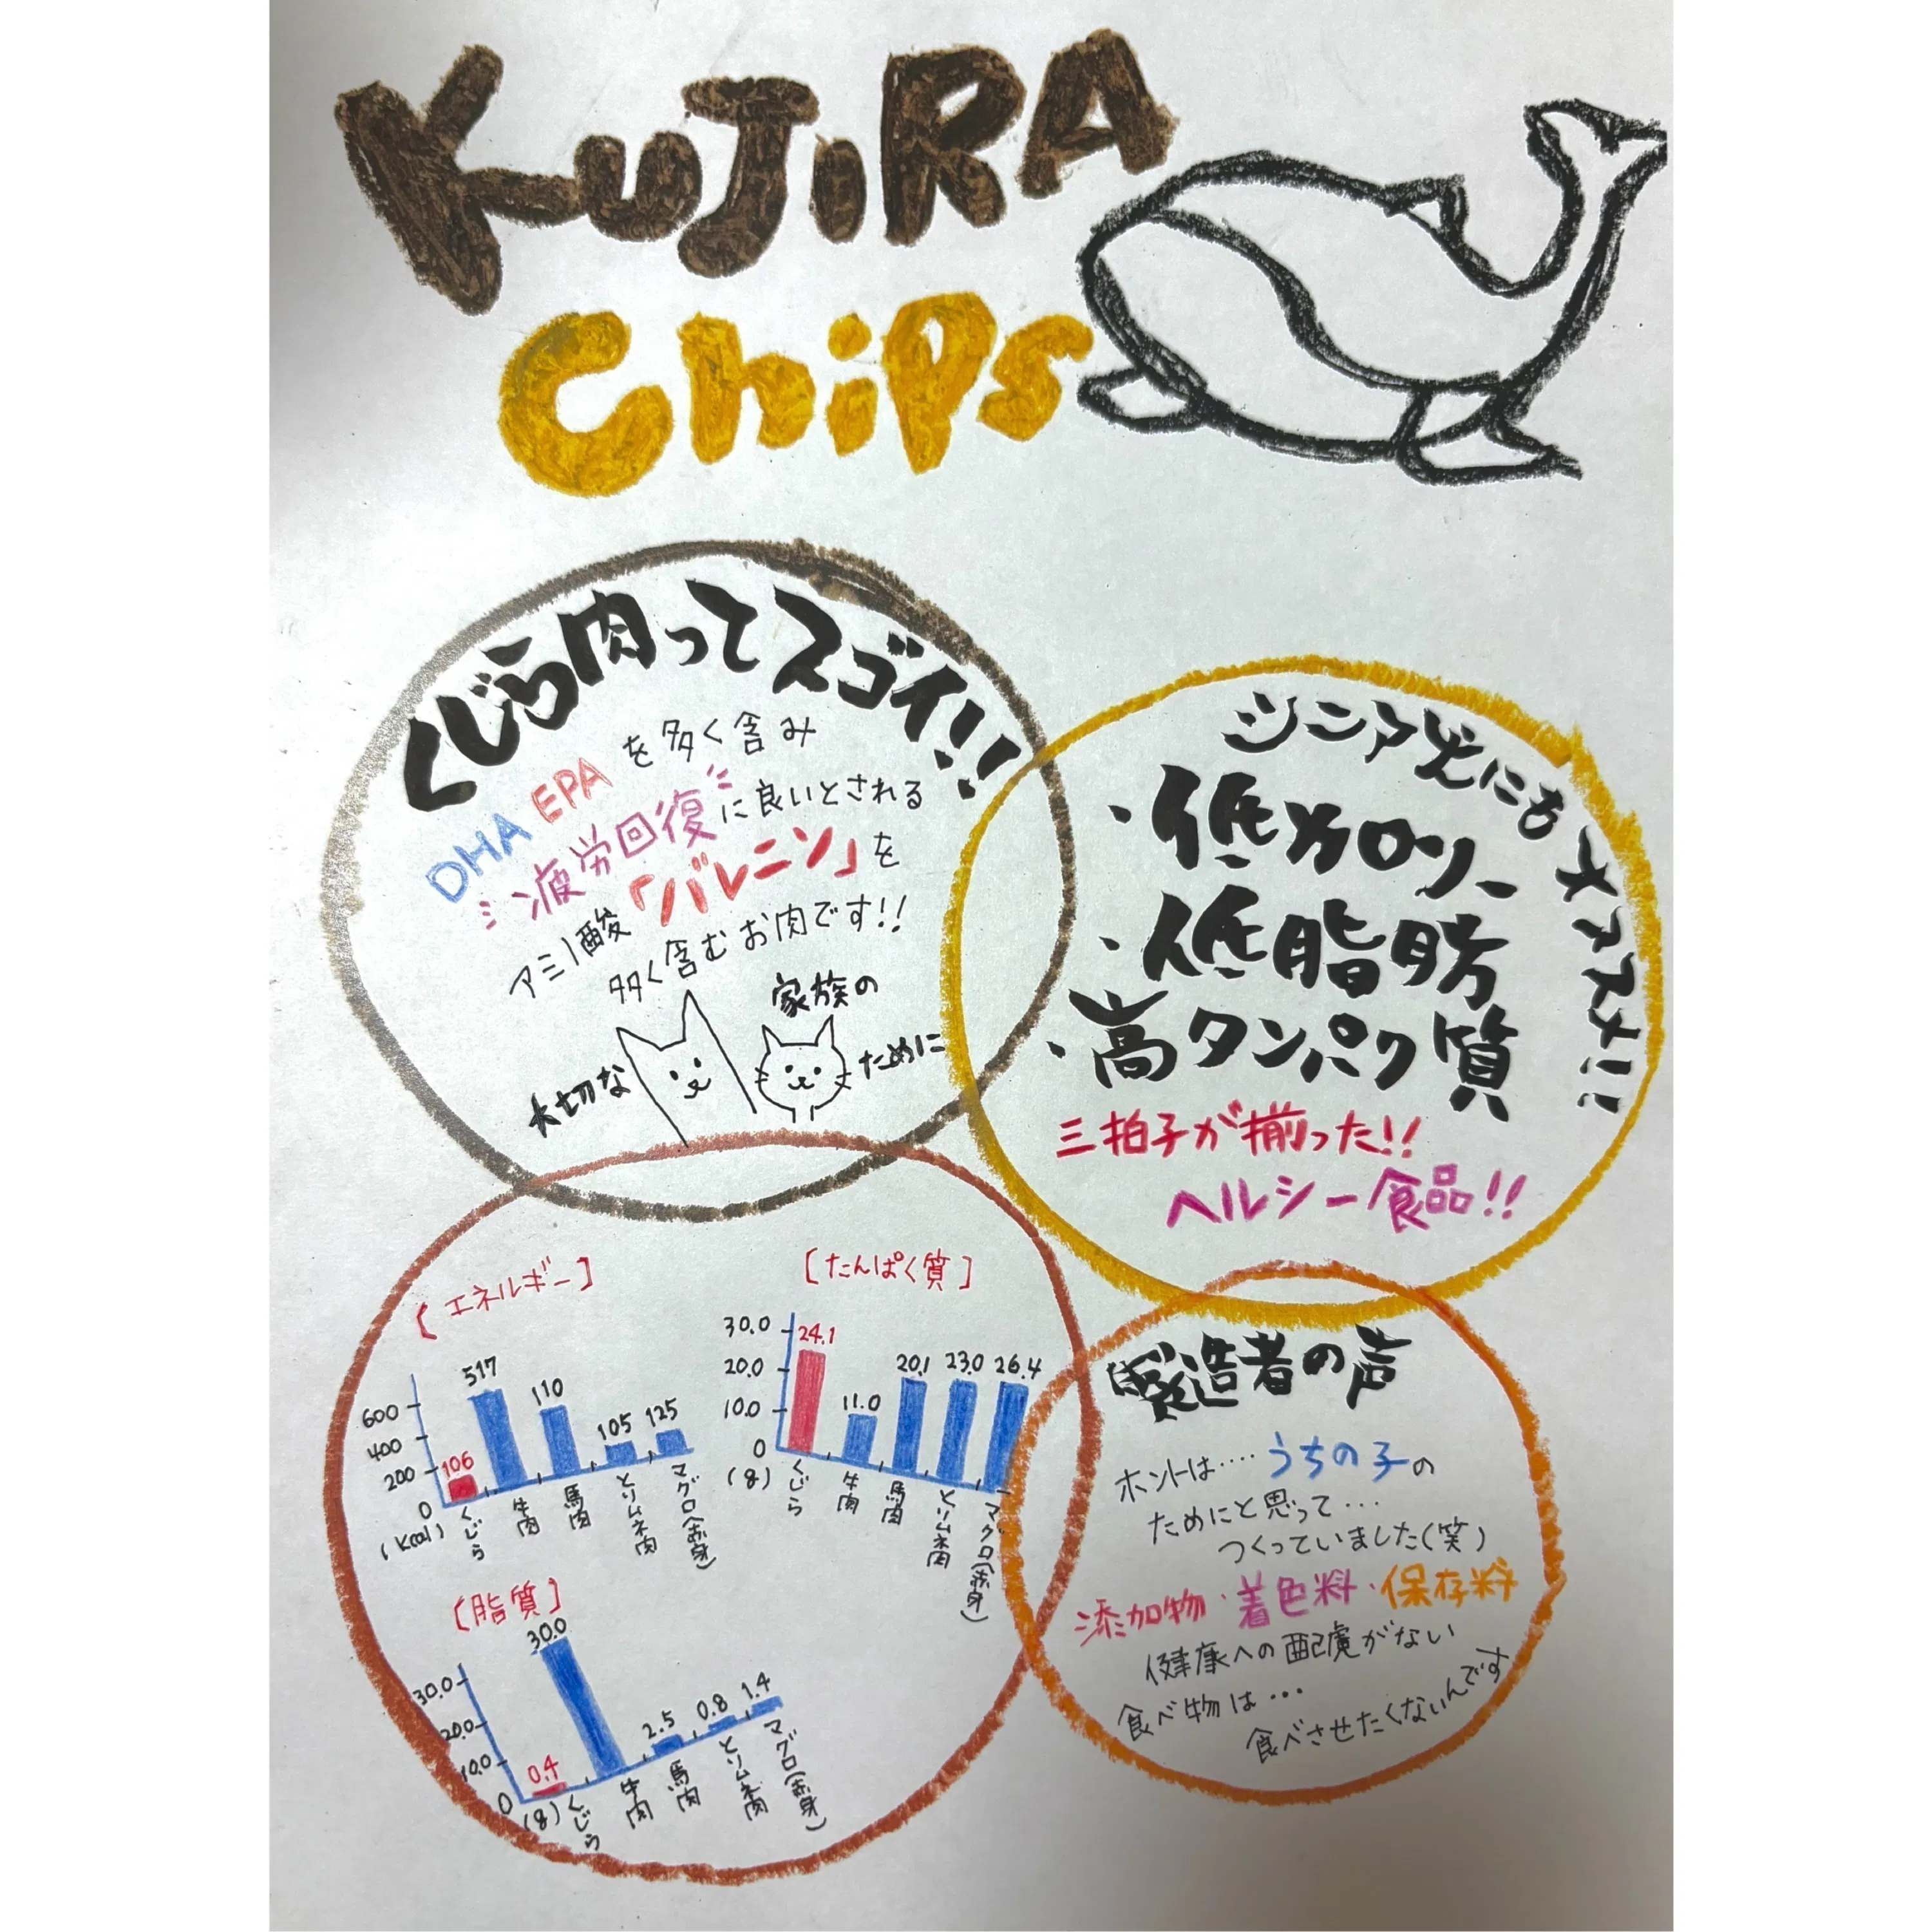 KUJIRA
Chips
くじら肉ってスゴイ!!
DHA EPA を多く含み
疲労回復に良いとされる
アミノ酸「バレニン」を
多く含むお肉です!!
大切な
家族の
ために
シニア犬にもオススメ!!
・低カロリー
・低脂肪
・高タンパク質
三拍子が揃った!!
ヘルシー食品!!
[エネルギー]
600
400
200
0
(Kcal)
106
517
110
105
125
くじら
牛肉
馬肉
とりムネ肉
マグロ(赤身)
[たんぱく質]
30.0
20.0
10.0
0
(g)
24.1
11.0
20.1
23.0
26.4
くじら
牛肉
馬肉
とりムネ肉
マグロ(赤身)
[脂質]
30.0
20.0
10.0
0
(g)
0.4
30.0
2.5
0.8
1.4
くじら
牛肉
馬肉
とりムネ肉
マグロ(赤身)
製造者の声
ホントは‥‥うちの子の
ためにと思って…
つくっていました(笑)
添加物・着色料・保存料
健康への配慮がない
食べ物は…
食べさせたくないんです